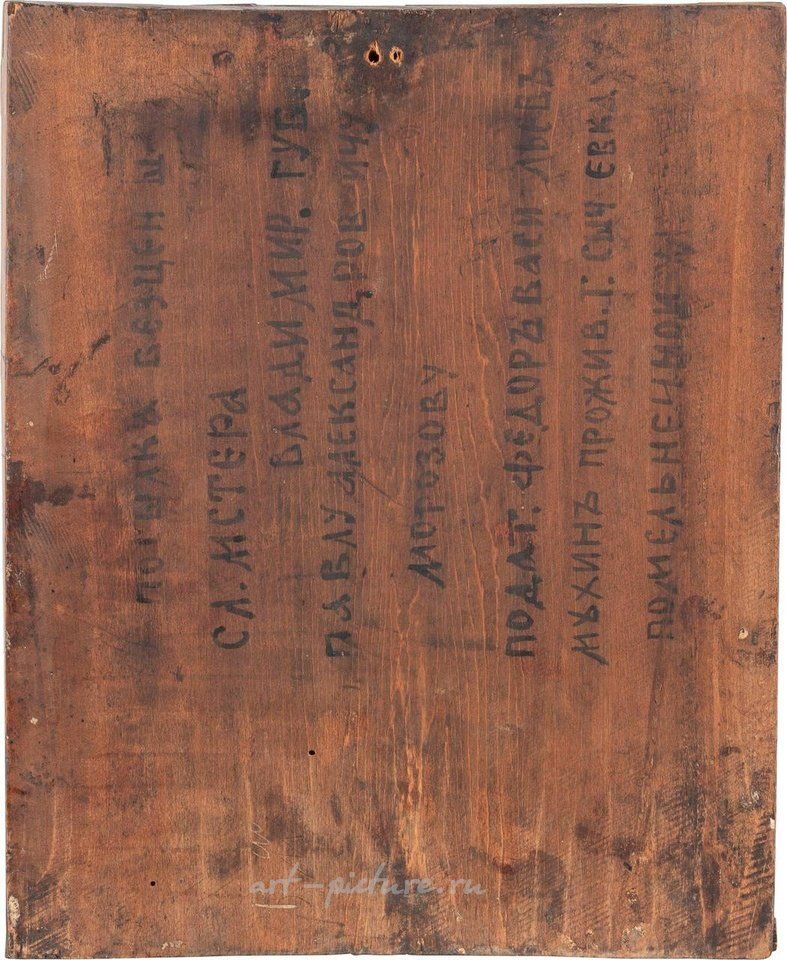 посылка безцен ы
Сл. Мстера
Владимир. губ.
Павлу Александровичу
Морозову
подат. Федоръ Васильевъ
Мухинъ прожив. г. Сыч евкду
помельненной
art-picture.ru